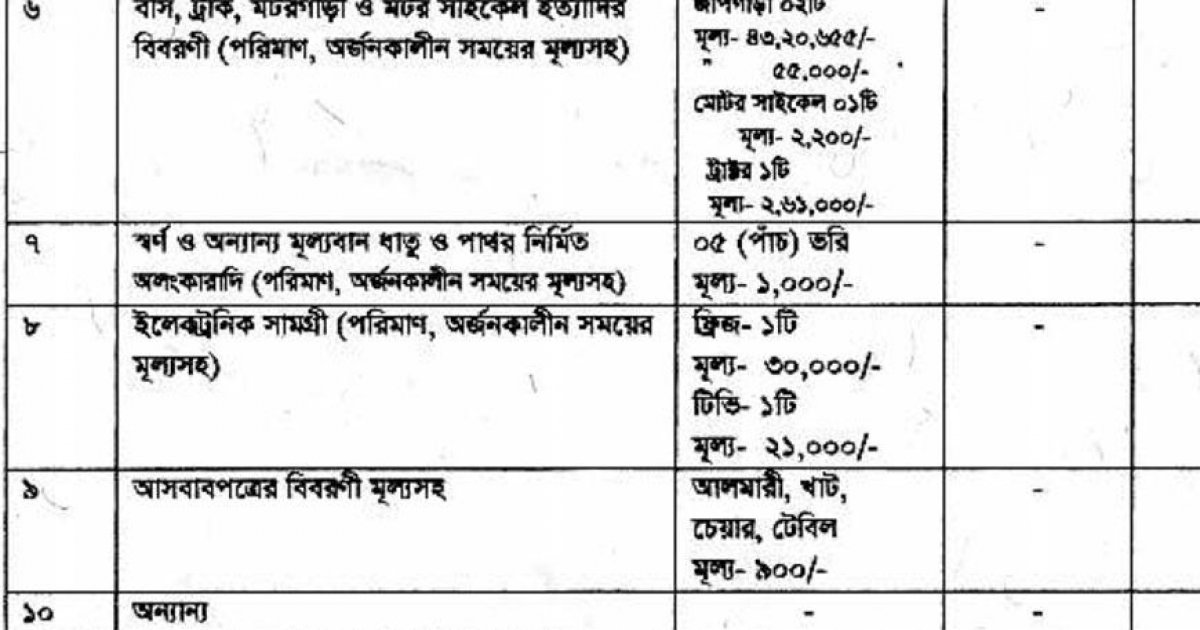 ৬
বাস, ট্রাক, মটরগাড়ী ও মটর সাইকেল ইত্যাদির
বিবরণী (পরিমাণ, অর্জনকালীন সময়ের মূল্যসহ)
জীপগাড়ী ০২টি
মূল্য- ৪৩,২০,৬৫৫/-
" ৫৫,০০০/-
মোটর সাইকেল ০১টি
মূল্য- ২,২০০/-
ট্রাক্টর ১টি
মূল্য- ২,৬১,০০০/-
-
৭
স্বর্ণ ও অন্যান্য মূল্যবান ধাতু ও পাথর নির্মিত
অলংকারাদি (পরিমাণ, অর্জনকালীন সময়ের মূল্যসহ)
০৫ (পাঁচ) ভরি
মূল্য- ১,০০০/-
-
৮
ইলেকট্রনিক সামগ্রী (পরিমাণ, অর্জনকালীন সময়ের
মূল্যসহ)
ফ্রিজ- ১টি
মূল্য- ৩০,০০০/-
টিভি- ১টি
মূল্য- ২১,০০০/-
-
৯
আসবাবপত্রের বিবরণী মূল্যসহ
আলমারী, খাট,
চেয়ার, টেবিল
মূল্য- ৯০০/-
-
১০
অন্যান্য
-
-